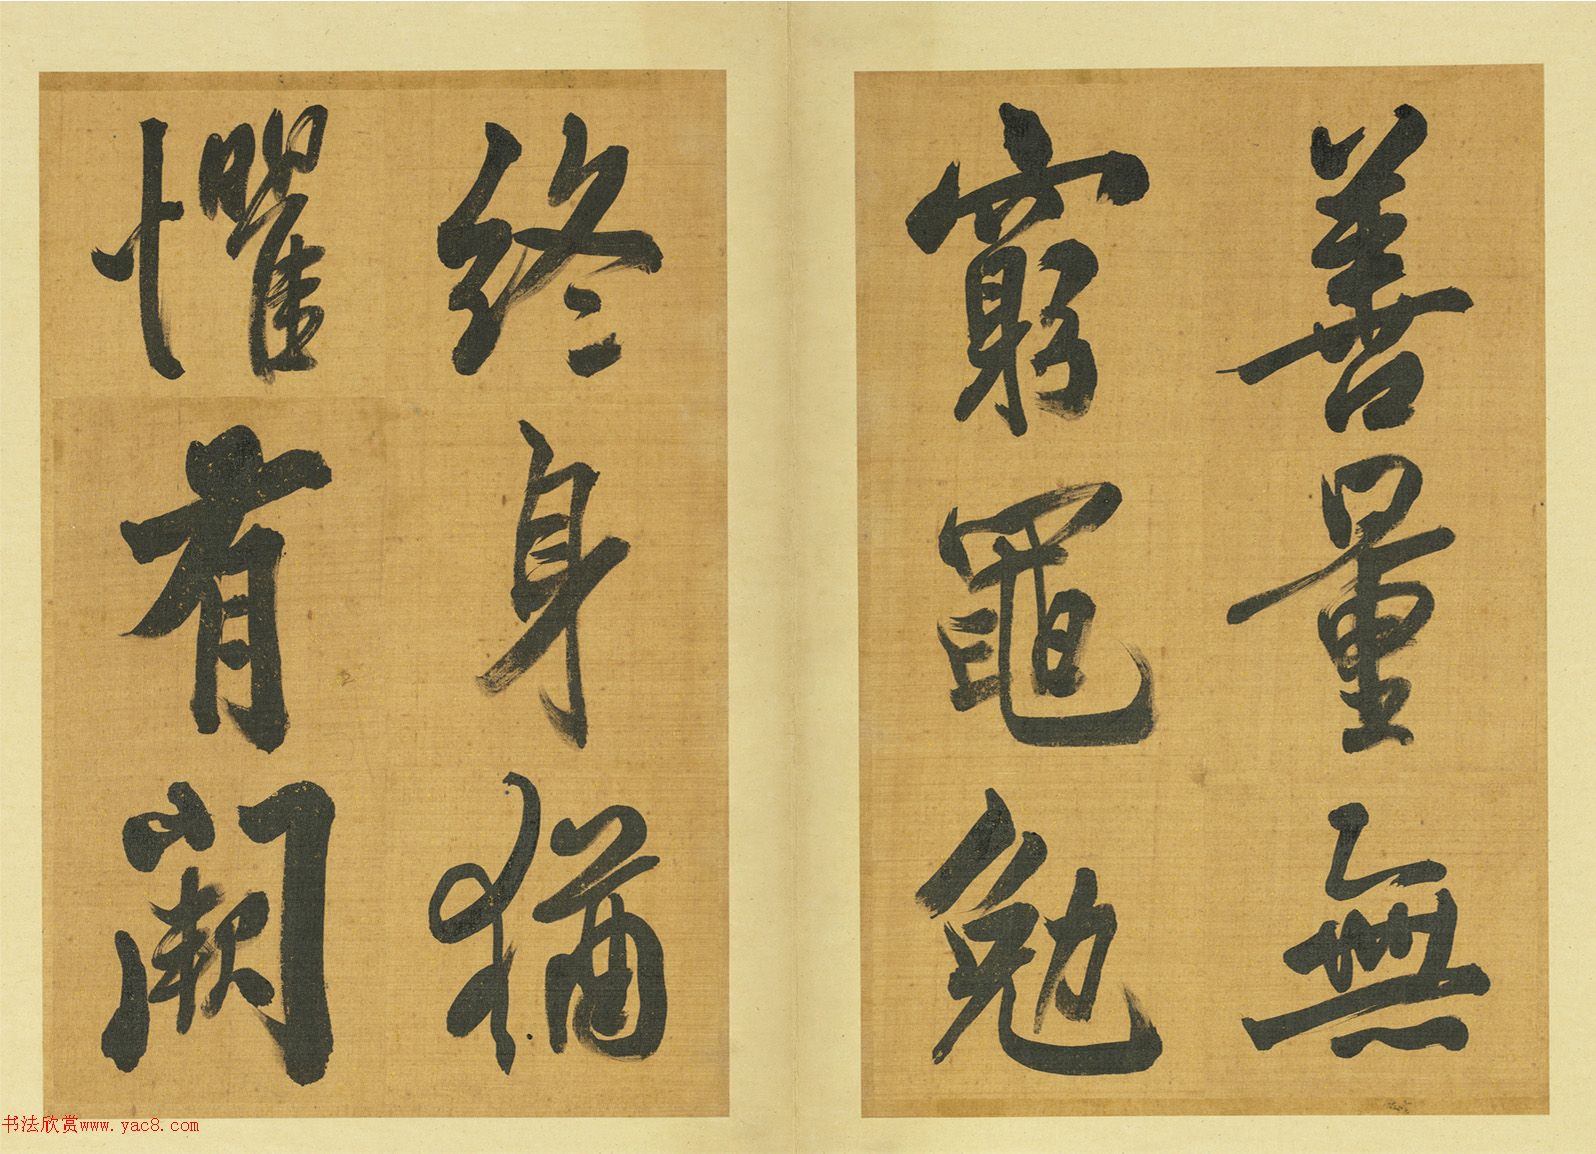 善量無
窮黽勉
終身猶
懼有闕
书法欣赏www.yac8.com